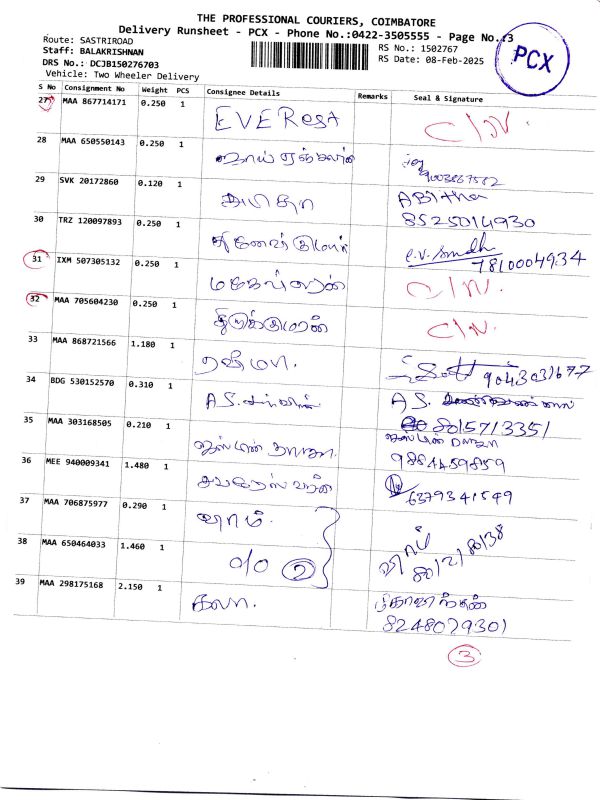 THE PROFESSIONAL COURIERS, COIMBATORE
Delivery Runsheet - PCX - Phone No.:0422-3505555 - Page No.:3
Route: SASTRIROAD
Staff: BALAKRISHNAN
RS No.: 1502767
DRS No.: DCJB150276703
RS Date: 08-Feb-2025
Vehicle: Two Wheeler Delivery
PCX
S No Consignment No Weight PCS Consignee Details Remarks Seal & Signature
27 MAA 867714171 0.250 1 EVEREST C/N.
28 MAA 650550143 0.250 1 9003867582
29 SVK 20172860 0.120 1 அபிதா ABitha
8525014930
30 TRZ 120097893 0.250 1 7810004934
31 IXM 507305132 0.250 1 மகேஸ்வரன் C/N.
32 MAA 705604230 0.250 1 திருக்குமரன் C/N.
33 MAA 868721566 1.180 1 9043031677
34 BDG 530152570 0.310 1 A.S. A S.
8015713351
35 MAA 303168505 0.210 1 ஜஸ்மின் ராஜா. ஜஸ்மின் ராஜா
9884459859
36 MEE 940009341 1.480 1 6379341549
37 MAA 706875977 0.290 1
38 MAA 650464033 1.460 1 0/0 2
39 MAA 298175168 2.150 1 கலா.
8248029301
3